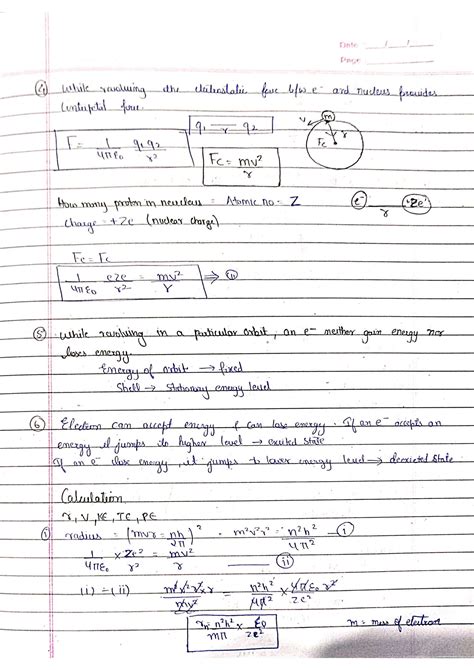 Date __/__/__
Page ______
④ While revolving the electrostatic force b/w e⁻ and nucleus provides
centripetal force.
F = 1/4πε₀ q₁q₂/r²
q₁ —r— q₂
Fc = mv²/r
V m r Fc
How many proton in nucleus = Atomic no - Z
e⁻ —r— Ze
charge = +Ze (nuclear charge)
Fe = Fc
1/4πε₀ eZe/r² = mv²/r ⇒ ⑪
⑤ While revolving in a particular orbit, an e⁻ neither gain energy nor
loses energy.
Energy of orbit → fixed
Shell → Stationary energy level
⑥ Electron can accept energy & can lose energy. If an e⁻ accepts an
energy it jumps to higher level → excited state
If an e⁻ lose energy, it jumps to lower energy level → deexcited state
Calculation
r, V, KE, TE, PE
① radius = (mvr = nh/2π)² · m²v²r² = n²h²/4π² —ⓘ
1/4πε₀ × Ze²/r² = mv²/r —(ii)
(i) ÷ (ii) m²v²r² × r/mv² = n²h²/4π² × 4πε₀ r²/Ze²
rₙ = n²h²/mπ × ε₀/Ze²
m = mass of electron